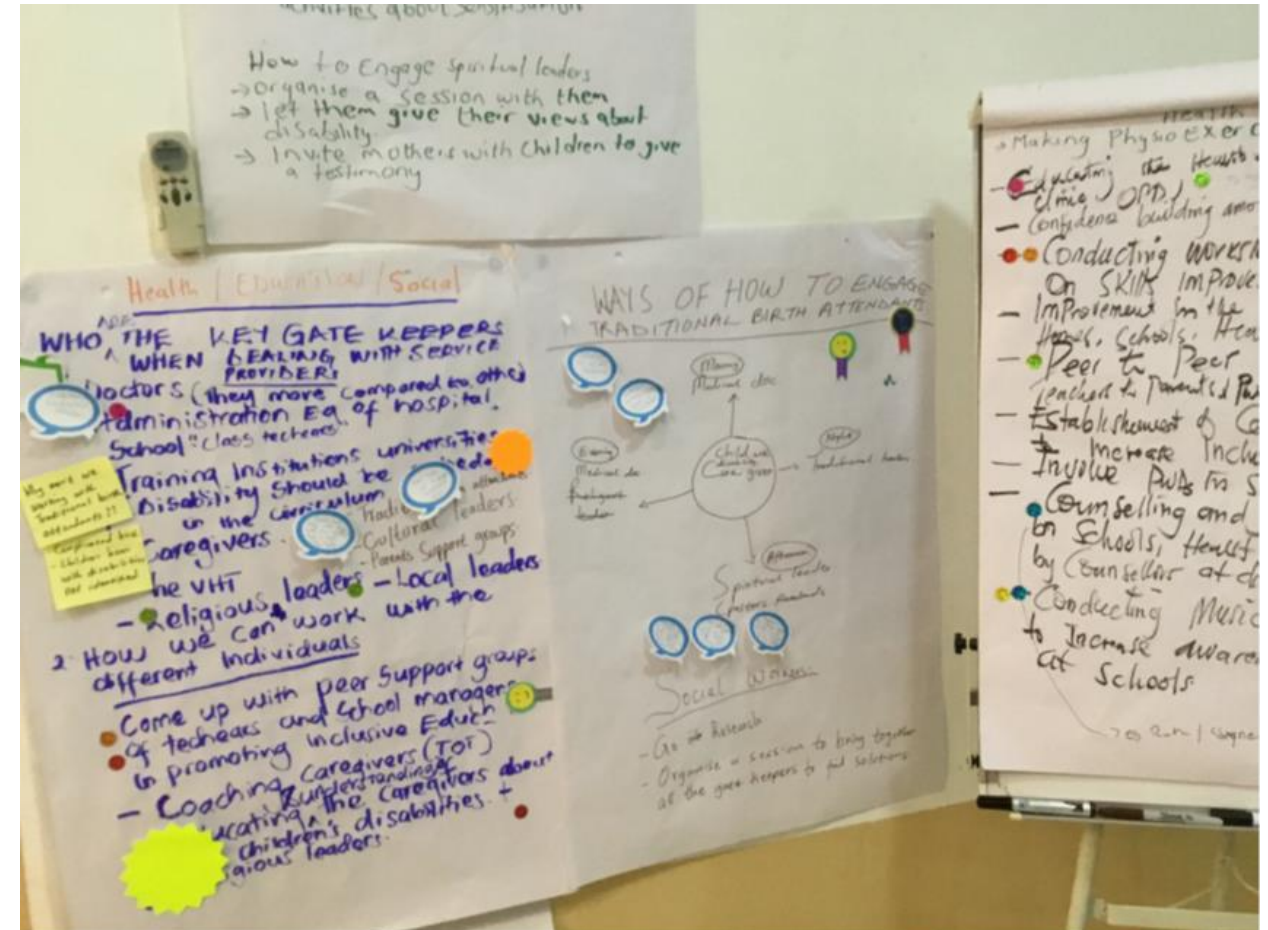 activities about sensitisation
How to Engage spiritual leaders
→ organise a session with them
→ let them give their views about
disability.
→ Invite mothers with children to give
a testimony
Health / Education / Social
WHO ARE THE KEY GATE KEEPERS
WHEN DEALING WITH SERVICE
PROVIDERS
Doctors (They more compared to other
Administration Eg of hospital.
School "Class techears"
Training Institutions universities
Disability Should be
in the curriculum
Caregivers.
attendants
Cultural leaders
- Parents Support groups
The VHT
- Religious leaders - Local leaders
2. How we can work with the
different Individuals
Come up with peer Support groups
of techears and School managers
in promoting inclusive Educ
- Coaching Caregivers (TOT)
& understanding of
the Caregivers about
children's disabilities +
leaders.
working with
Traditional birth
attendants??
- Children born
with disabilities
WAYS OF HOW TO ENGAGE
TRADITIONAL BIRTH ATTENDANTS
Medical doc
Child with
disability
Care giver
Night
Traditional healer
Evening
Medical doc
Religious
leader
Afternoon
Spiritual leader
Social Workers
- Go to Research
- Organise a session to bring together
all the gate keepers to find solutions
Health
- Making Physio Exer
- Educating the Health
Clinic OPD.)
- Confidence building amo
Conducting works
On SKills Improve
- Improvement in the
Homes, Schools, Hea
- Peer to Peer
Teachers to Parents &
- Establishement of Ce
to Increase Inclu
- Involve PWDs in S
- Counselling and
by Counsellors at
Conducting Music
to Increase aware
at Schools